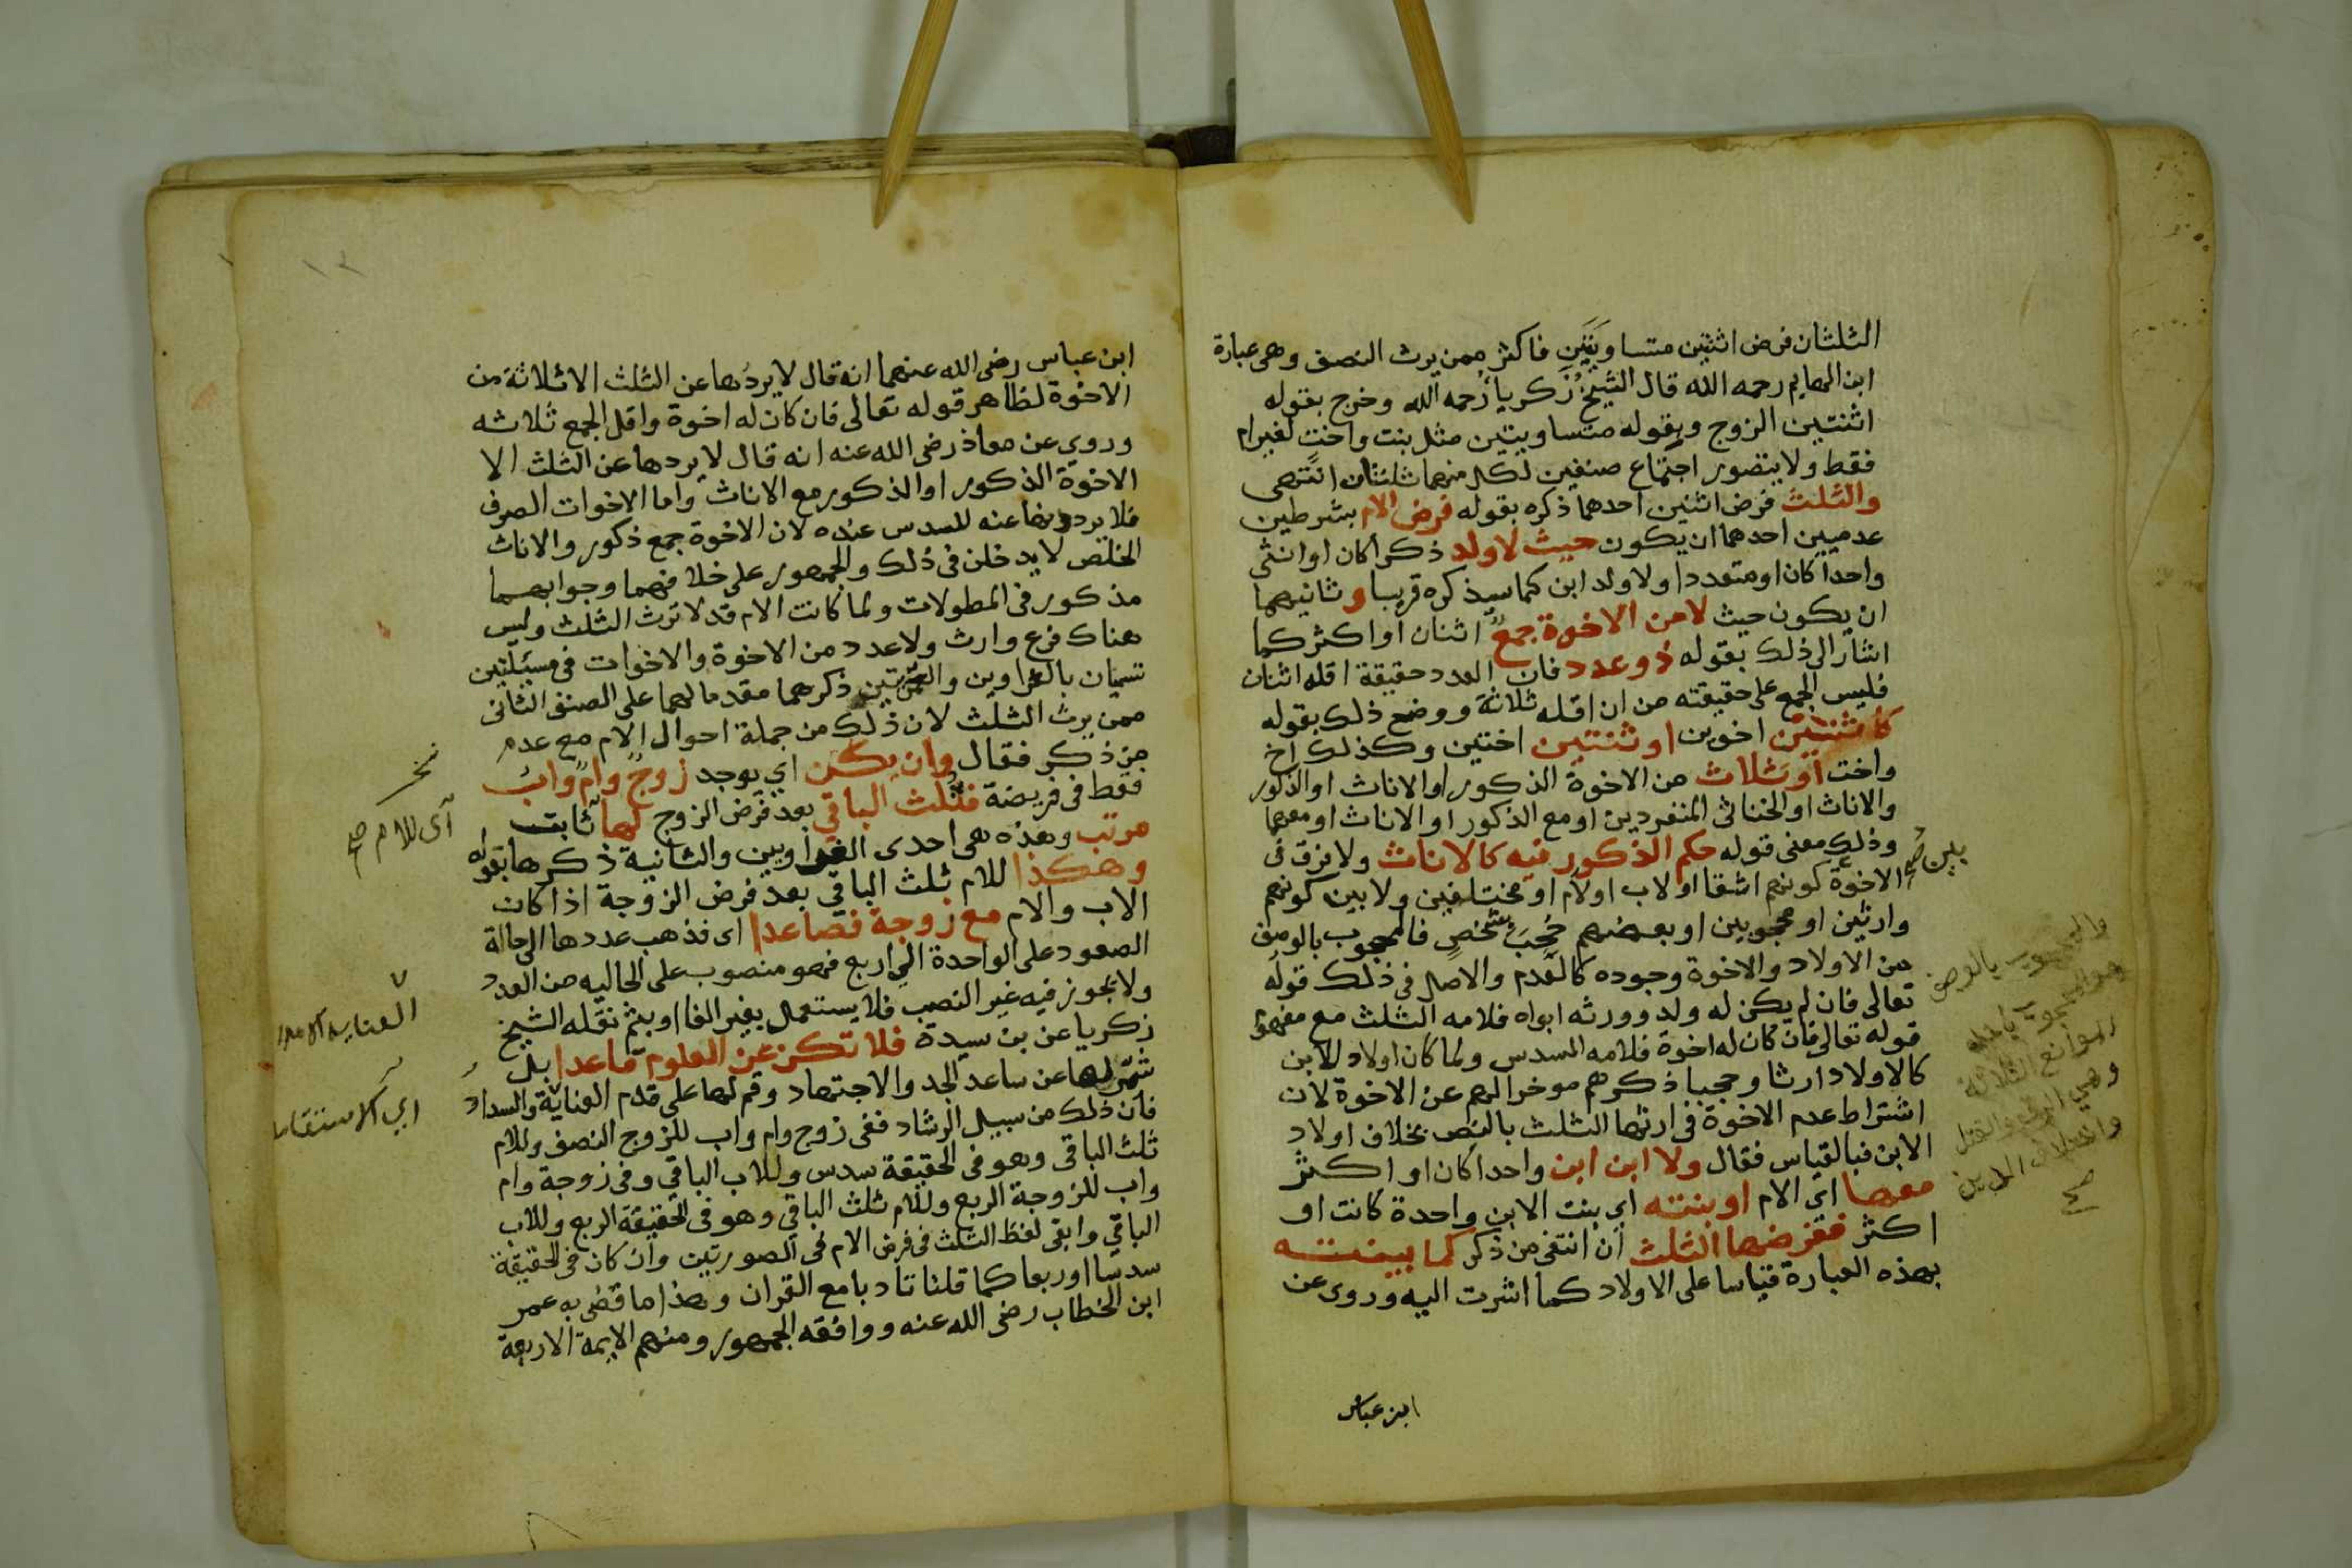 الثلثان فرض اثنتين متساويتين فاكثر ممن يرث النصف وهى عبارة
ابن الهايم رحمه الله قال الشيخ زكريا رحمه الله وخرج بقوله
اثنتين الزوج وبقوله متساويتين مثل بنت واخت لغير ام
فقط ولا يتصور اجتماع صنفين لكل منهما ثلثان انتهى
والثلث فرض اثنين احدهما ذكره بقوله فرض الام بشرطين
عدميين احدهما ان يكون حيث لا ولد ذكرا كان او انثى
واحدا كان او متعددا ولا ولد ابن كما سيذكره قريبا وثانيهما
ان يكون حيث لا من الاخوة جمع اثنان او اكثر كما
اشار الى ذلك بقوله ذو عدد فان العدد حقيقة اقله اثنان
فليس الجمع على حقيقته من ان اقله ثلاثة ووضع ذلك بقوله
كاثنين اخوين او ثنتين اختين وكذلك اخ
واخت او ثلاث من الاخوة الذكور او الاناث او الذكور
والاناث او الخناثى المنفردين او مع الذكور او الاناث او معهما
وذلك معنى قوله حكم الذكور فيه كالاناث ولا فرق فى
بين صح
الاخوة كونهم اشقا او لاب او لام او مختلفين ولا بين كونهم
وارثين او محجوبين او بعضهم حجب شخص فالمحجوب بالوصف
من الاولاد والاخوة وجوده كالعدم والاصل فى ذلك قوله
تعالى فان لم يكن له ولد وورثه ابواه فلامه الثلث مع مفهوم
قوله تعالى فان كان له اخوة فلامه السدس ولما كان اولاد الابن
كالاولاد ارثا وحجبا ذكرهم موخرا لهم عن الاخوة لان
اشتراط عدم الاخوة فى ارثها الثلث بالنص بخلاف اولاد
الابن فبالقياس فقال ولا ابن ابن واحدا كان او اكثر
معها اي الام او بنته اي بنت الابن واحدة كانت او
اكثر ففرضها الثلث ان انتفى من ذكر كما بينته
بهذه العبارة قياسا على الاولاد كما اشرت اليه وروى عن
ابن عباس
والمحجوب بالوصف
هو المحجوب باحد
الموانع الثلاثة
وهي الرق والقتل
واختلاف الدين
صح
ابن عباس رضى الله عنهما انه قال لا يردها عن الثلث الا ثلاثة من
الاخوة لظاهر قوله تعالى فان كان له اخوة واقل الجمع ثلاثه
وروي عن معاذ رضى الله عنه انه قال لا يردها عن الثلث الا
الاخوة الذكور او الذكور مع الاناث واما الاخوات الصرف
فلا يردونها عنه للسدس عنده لان الاخوة جمع ذكور والاناث
الخلص لا يدخلن فى ذلك والجمهور على خلافهما وجوابهما
مذكور فى المطولات ولما كانت الام قد لا ترث الثلث وليس
هناك فرع وارث ولا عدد من الاخوة والاخوات فى مسئلتين
تسميان بالغراوين والعمريتين ذكرهما مقدما لهما على الصنف الثانى
ممن يرث الثلث لان ذلك من جملة احوال الام مع عدم
من ذكر فقال وان يكن اي يوجد زوج وام واب
فقط فى فريضة فثلث الباقي بعد فرض الزوج لها ثابت
مرتب وهذه هى احدى الغراوين والثانية ذكرها بقوله
وهكذا للام ثلث الباقي بعد فرض الزوجة اذا كان
الاب والام مع زوجة فصاعدا اى فذهب عددها الى حالة
الصعود على الواحدة الى اربع فهو منصوب على الحاليه من العدد
ولا يجوز فيه غير النصب فلا يستعمل بغير الفا او بثم نقله الشيخ
زكريا عن بن سيدة فلا تكن عن العلوم قاعدا بل
شمر لها عن ساعد الجد والاجتهاد وقم لها على قدم العناية والسداد
فان ذلك من سبيل الرشاد ففى زوج وام واب للزوج النصف وللام
ثلث الباقى وهو فى الحقيقة سدس وللاب الباقي وفى زوجة وام
واب للزوجة الربع وللام ثلث الباقي وهو فى الحقيقة الربع وللاب
الباقي وابقى لفظ الثلث فى فرض الام فى الصورتين وان كان فى الحقيقة
سدسا او ربعا كما قلنا تادبا مع القران وهذا ما قضى به عمر
ابن الخطاب رضى الله عنه ووافقه الجمهور ومنهم الايمة الاربعة
اى للام صح
اي الاستقامة